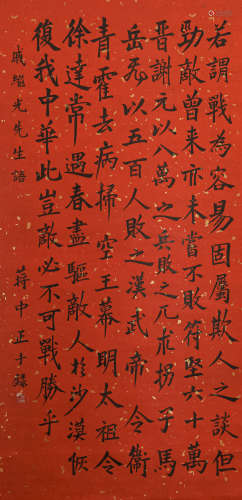 若謂戰為容易固屬欺人之談但
勁敵曾来亦未嘗不敗符堅六十萬
晉謝元以八萬之兵敗之兀朮拐子馬
岳飛以五百人敗之漢武帝令衞
青霍去病掃空王幕明太祖令
徐達常遇春盡驅敵人於沙漠恢
復我中華此豈敵必不可戰勝乎
戚繼光先生語
蔣中正手錄